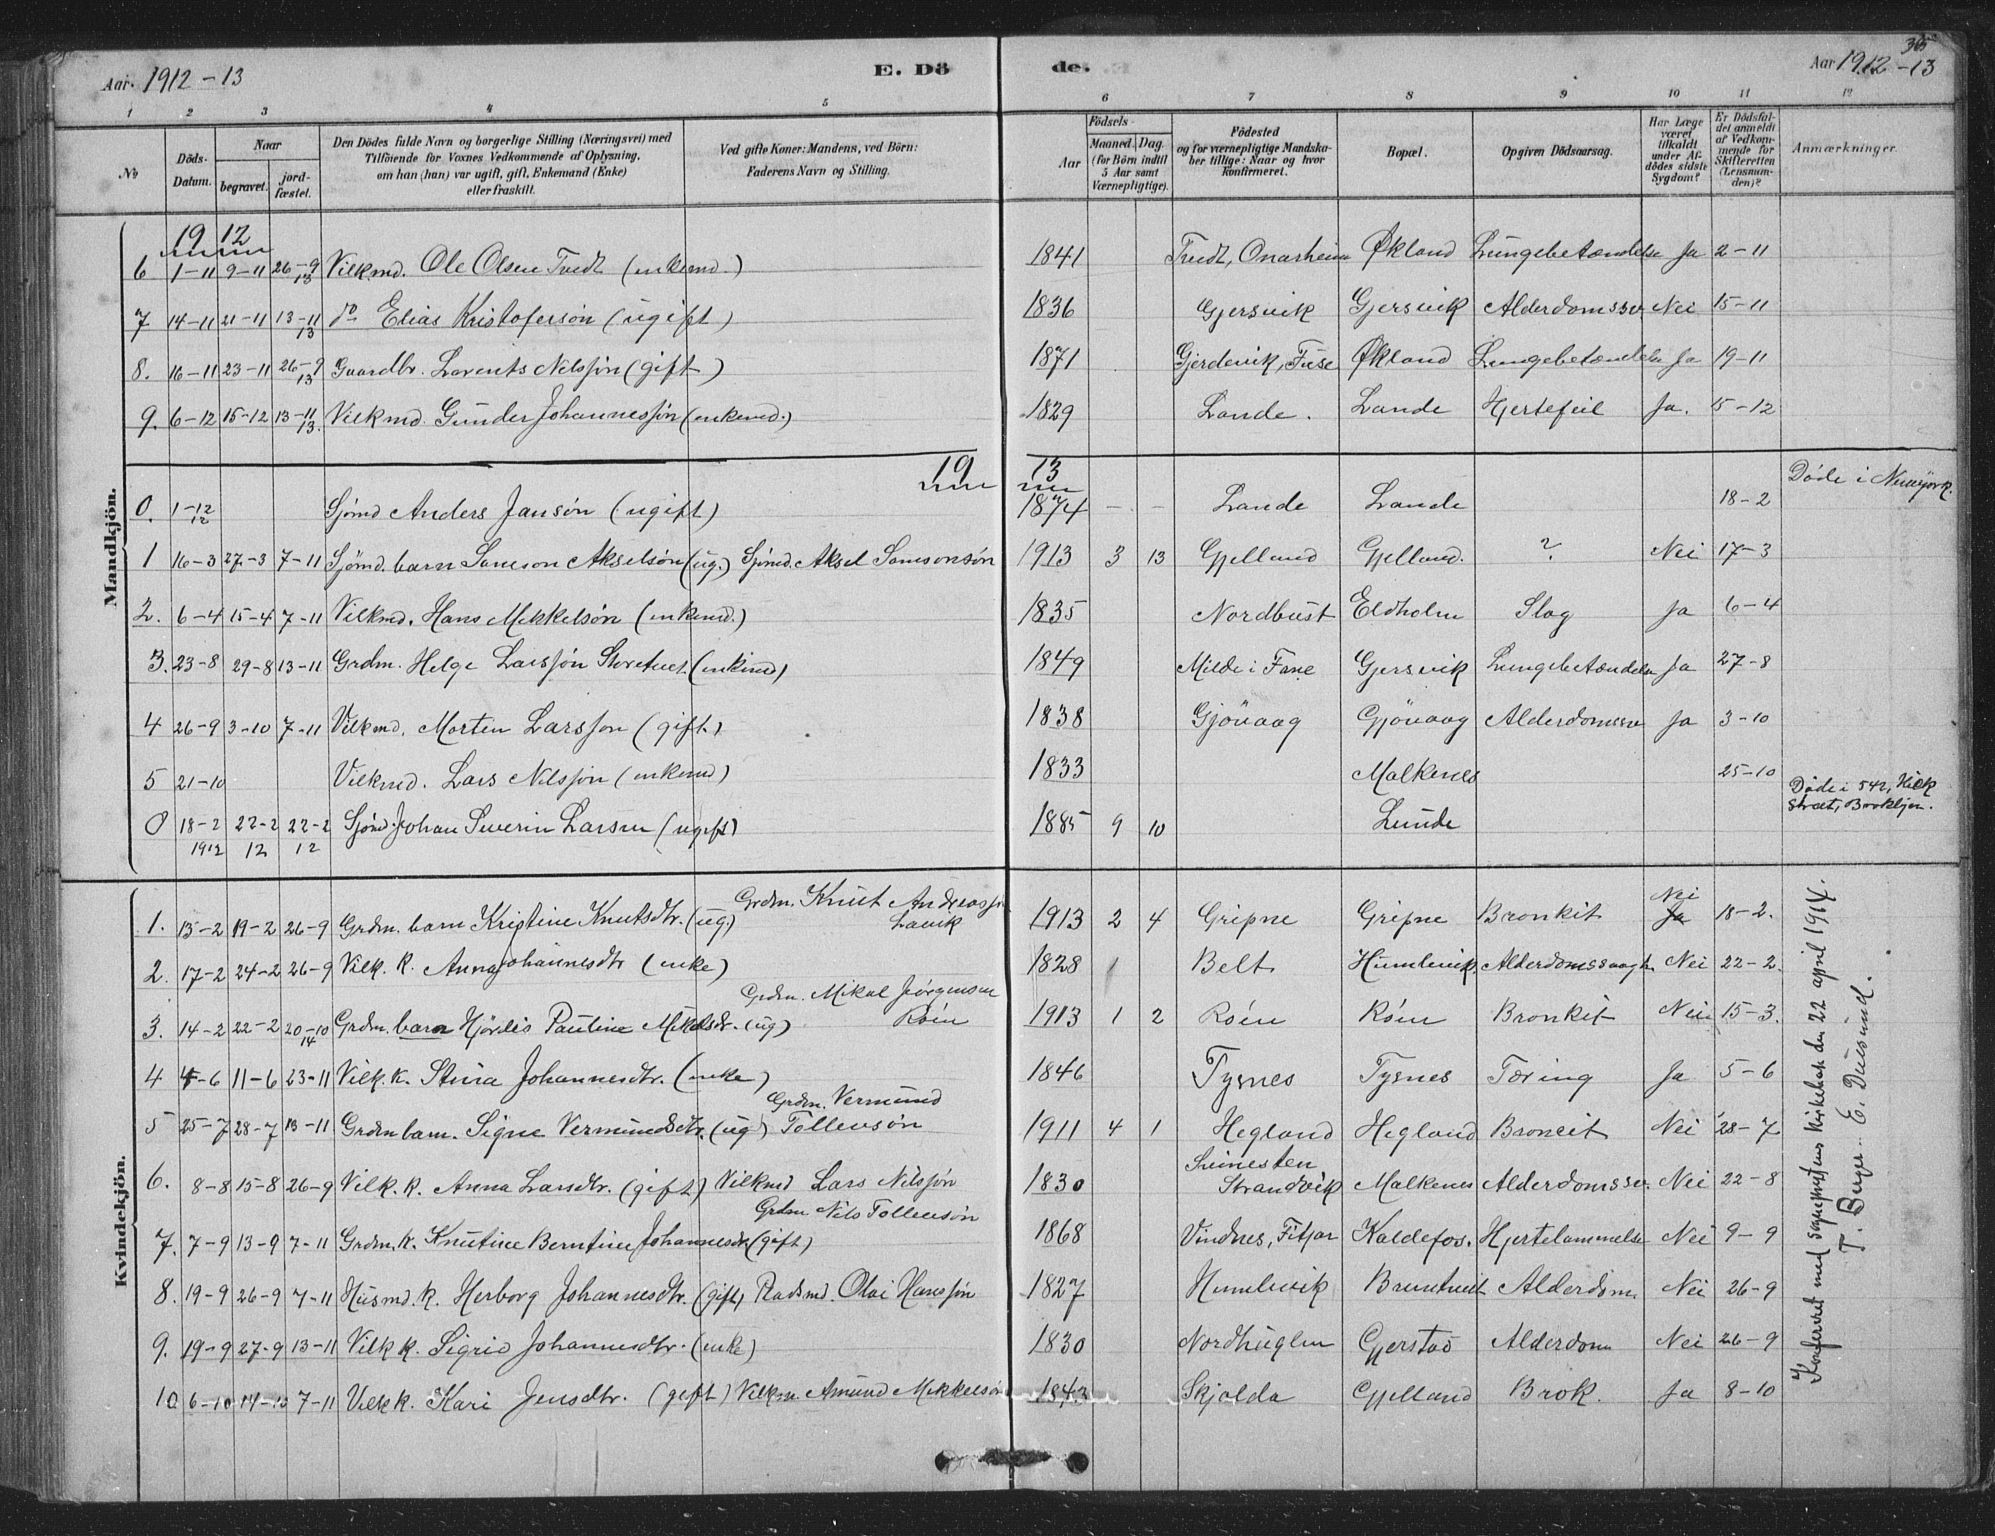 Aar. 1912-13 E. Dö
de. Aar 1912-13
1 2 3 4 5 6 7 8 9 10 11 12
No
Döds-Datum.
Naar
begravet.
jord-fæstet.
Den Dödes fulde Navn og borgerlige Stilling (Næringsvei) med
Tilföiende for Voxnes Vedkommende af Oplysning,
om han (hun) var ugift, gift, Enkemand (Enke)
eller fraskilt.
Ved gifte Koner: Mandens, ved Börn:
Faderens Navn og Stilling.
Födsels-
Aar
Maaned. Dag.
(for Börn indtil
5 Aar samt
Værnepligtige).
Födested
og for værnepligtige Mandska-
ber tillige: Naar og hvor
konfirmeret.
Bopæl.
Opgiven Dödsaarsag.
Har Læge
været
tilkaldt
under Af-
dödes sidste
Sygdom?
Er Dödsfal-
det anmeldt
af Vedkom-
mende for
Skifteretten
(Lensman-
den)?
Anmærkninger.
Mandkjön.
1912
6 1-11 9-11 26-9 13 Vilkmd. Ole Olsen Tvedt (enkemd.) 1841 Tvedt, Onarheim Økland Lungebetændelse Ja 2-11
7 14-11 21-11 13-11 13 do Elias Kristofersön (ugift) 1836 Gjersvik Gjersvik Alderdomssv. Nei 15-11
8. 16-11 23-11 26-9 13 Gaardbr. Lorents Nilssön (gift) 1871 Gjerdevik, Fuse Økland Lungebetændelse Ja 19-11
9. 6-12 15-12 13-11 13. Vilkmd. Gunder Johannessön (enkemd.) 1829 Lande. Lande Hjertefeil Ja. 15-12
1913
0. 1-12 12 Sjömd Anders Jansön (ugift) 1874 - - Lande Lande 18-2 Döde i Newyörk.
1 16-3 27-3 7-11 Sjömd. barn Samson Akselsön (ug.) Sjömd. Aksel Samsonsön 1913 3 13 Gjelland Gjelland. ? Nei 17-3
2. 6-4 15-4 7-11 Vilkmd. Hans Mikkelsön (enkemd.) 1835 Nordbust Eldholm Slag Ja 6-4
3. 23-8 29-8 13-11 Grdm. Helge Larssön Storetvet (enkemd) 1849 Milde i Fane Gjersvik Lungebetændelse Ja 27-8
4 26-9 3-10 7-11 Vilkmd. Morten Larsson (gift) 1838 Gjövaag Gjövaag Alderdomssv Ja 3-10
5 21-10 Vilkmd. Lars Nilssön (enkemd) 1833 Malkenes 25-10
0 18-2 1912 22-2 12 22-2 12 Sjömd. Johan Severin Larsen (ugift) 1885 9 10 Lunde Döde i 542, Hick
Street, Brooklyn.
Kvindekjön.
1. 13-2 19-2 26-9 Grdm. barn Kristine Knutsdtr. (ug) Grdm. Knut Andreassön
Lavik 1913 2 4 Gripne Gripne Bronkit Nei Ja 18-2.
2. 17-2 24-2 26-9 Vilk. k. Anna Johannesdtr (enke) 1828 Belt Humlevik Alderdomssvagh. Nei 22-2.
3. 14-2 22-2 20-10 14 Grdm. barn Hjördis Pauline Mikalsdr. (ug) Grdm. Mikal Jörgensen
Röen 1913 1 2 Röen Röen Bronkit Nei 15-3.
4 4-6 11-6 23-11 Vilk. k. Stina Johannesdtr. (enke) 1846 Tysnes Tysnes Tæring Ja 5-6
5 25-7 28-7 13-11 Grdm barn. Signe Vermundsdtr. (ug) Grdm. Vermund
Tollensön 1911 4 1 Hegland Hegland Bronkit Nei 28-7
6. 8-8 15-8 26-9 Vilk. k. Anna Larsdtr. (gift) Vilkmd Lars Nilssön 1830 Strandvik Malkenes Alderdomssv. Nei 22-8
7. 7-9 13-9 7-11 Grdm. k. Knutine Berntine Johannesdr. (gift) Grdm Nils Tollensön 1868 Vindnes, Fitjar Kaldefos. Hjertelammelse Nei 9-9
8. 19-9 26-9 7-11 Husmd. k. Herborg Johannesdtr. (gift) Pladsmd. Olai Hanssön 1827 Humlevik Bruntveit Alderdom Nei 26-9
9. 19-9 27-9 13-11 Vilk k. Sigrid Johannesdtr. (enke) 1830 Nordhuglen Gjerstad Alderdom Nei 26-9
10 6-10 14-10 7-11 Vilk k. Kari Jensdtr. (gift) Vilkm. Amund Mikkelsön 1843 Skjolda Gjelland Brok. Ja 8-10
Konfereret med sogneprestens kirkebok den 22 april 1914.